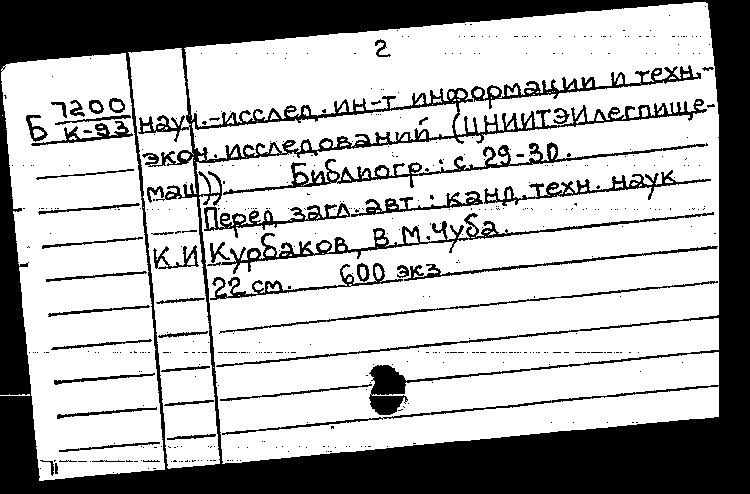 2
Б 7200
К-93
науч.-исслед. ин-т информации и техн.-
экон. исследований. (ЦНИИТЭИлегпище-
маш)). Библиогр.: с. 29-30.
Перед загл. авт.: канд. техн. наук
К.И. Курбаков, В.М. Чуба.
22 см. 600 экз.